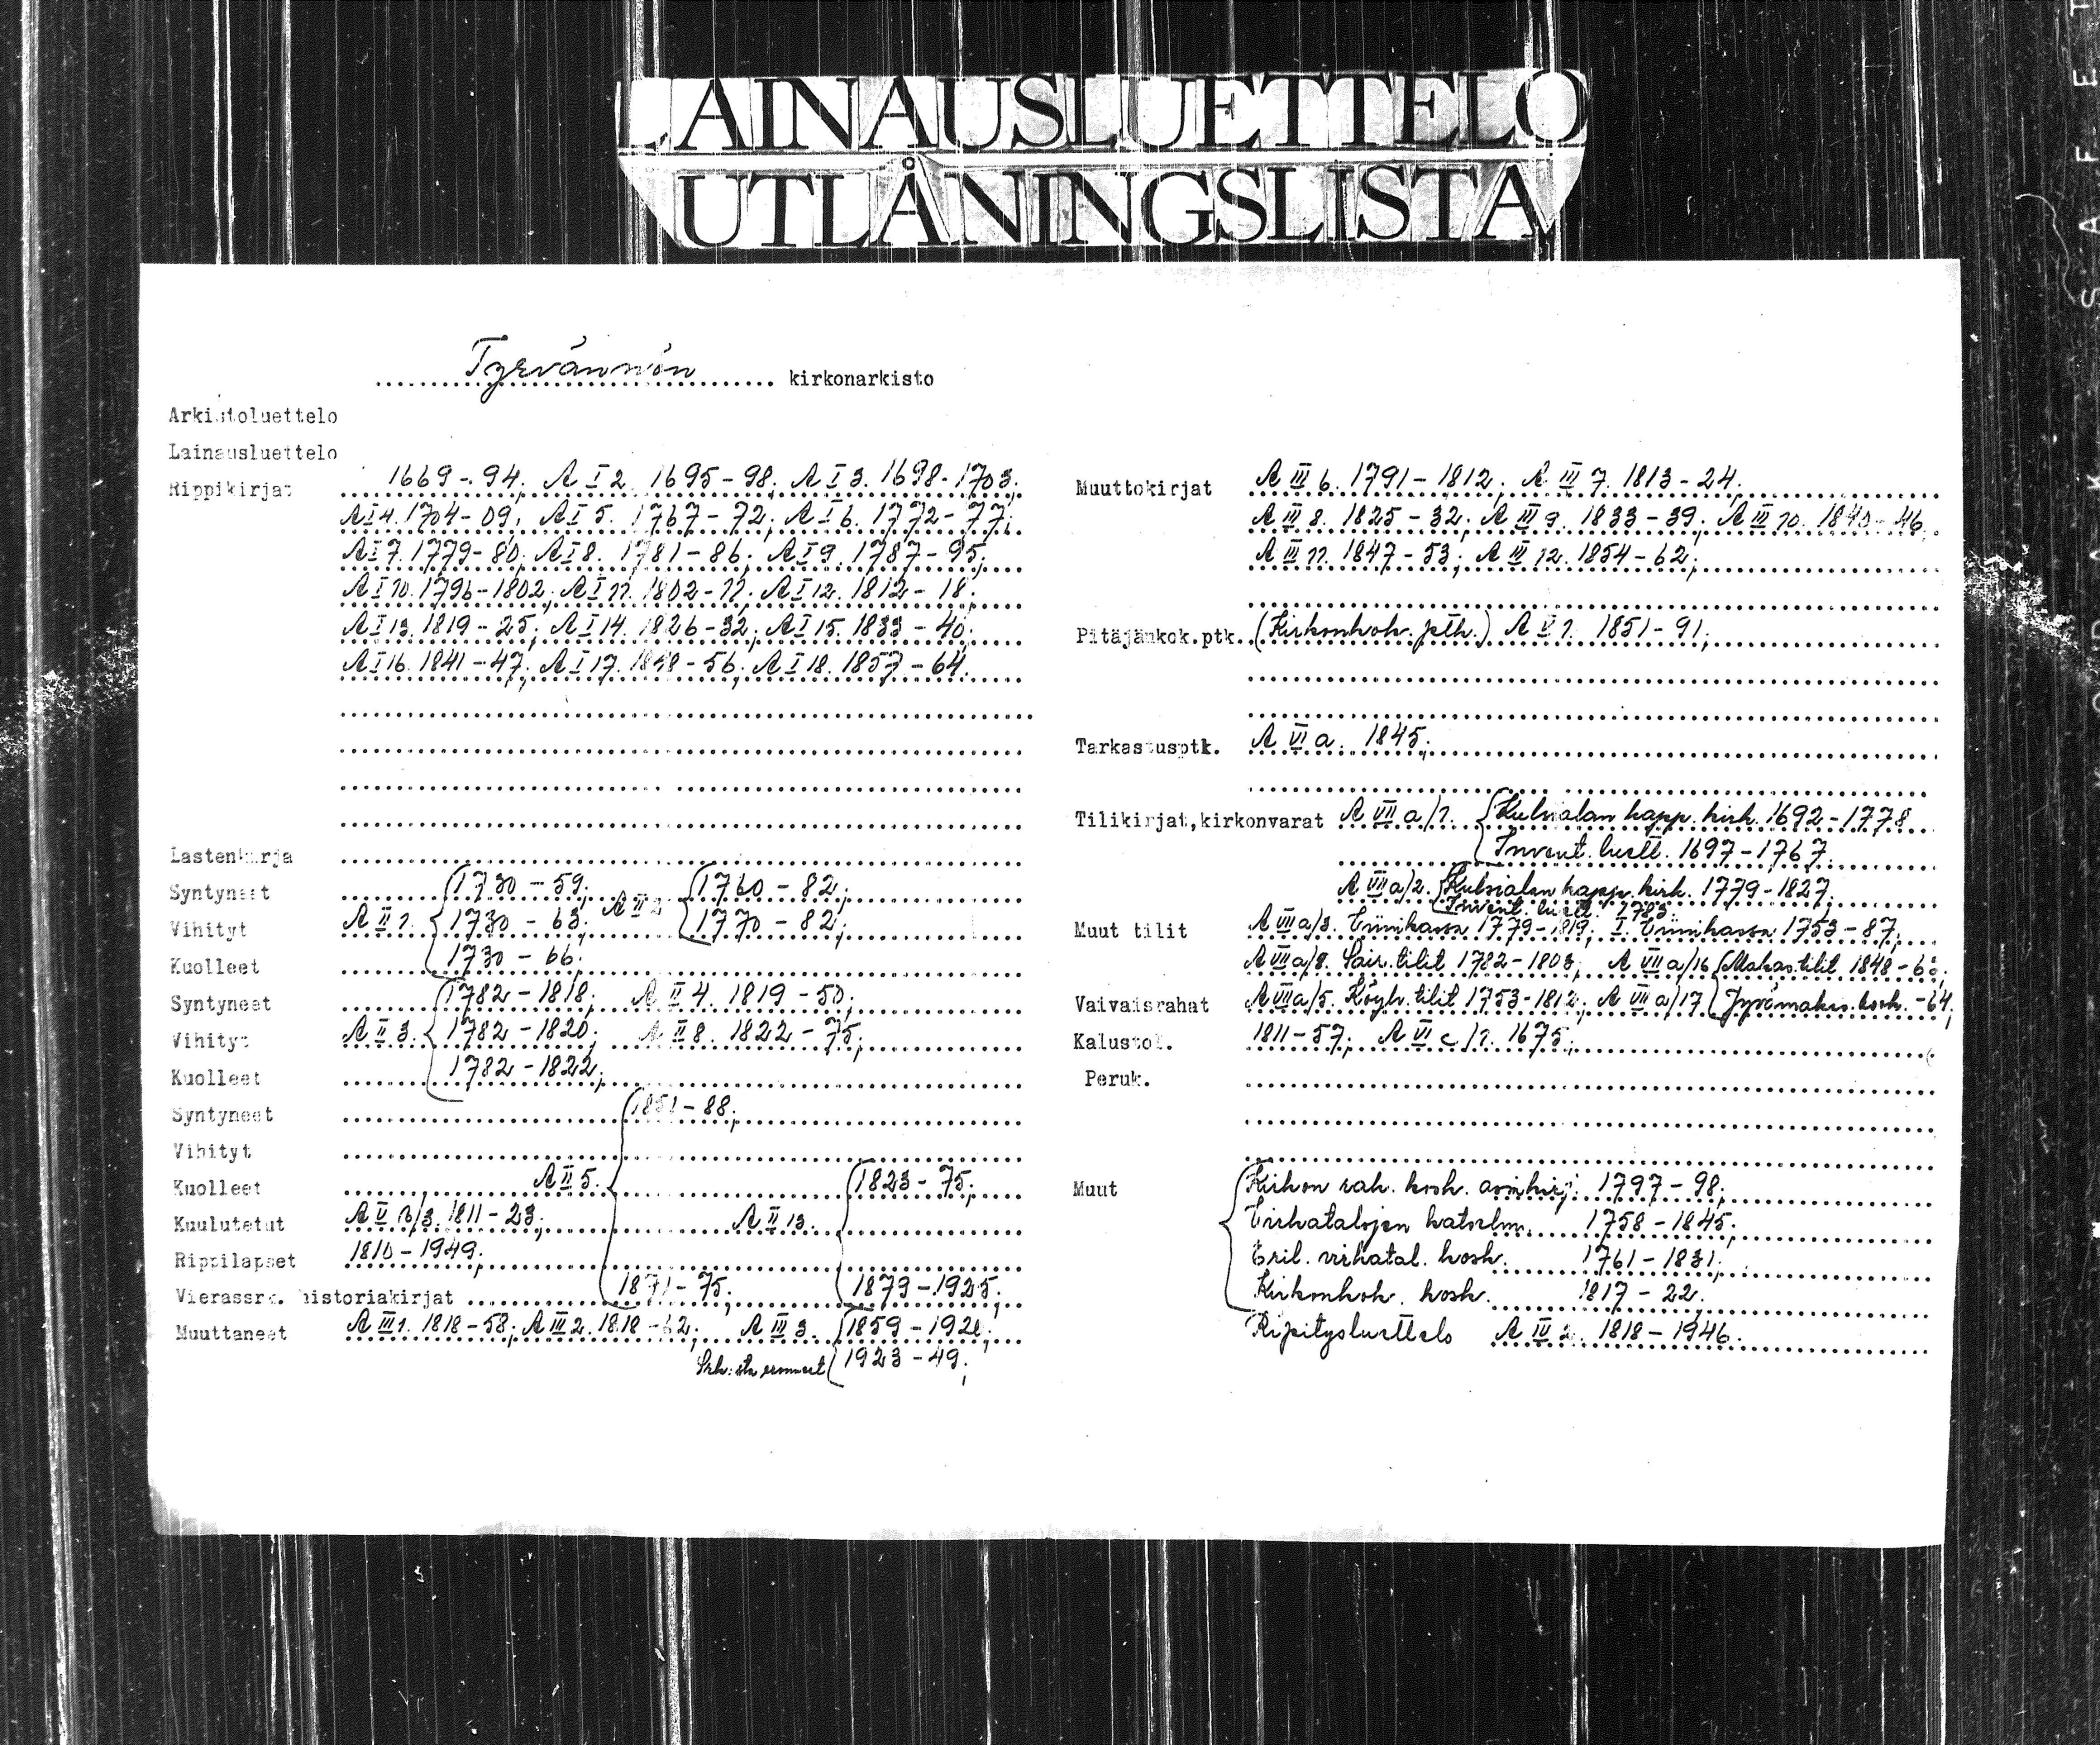 LAINAUSLUETTELO
UTLÅNINGSLISTA
Tyrvännön kirkonarkisto
Arkistoluettelo
Lainausluettelo
Rippikirjat 1669-94. A I 2. 1695-98. A I 3. 1698-1703.
A I 4. 1704-09; A I 5. 1767-72; A I 6. 1772-77;
A I 7. 1779-80; A I 8. 1781-86; A I 9. 1787-95;
A I 10. 1796-1802; A I 11. 1802-11; A I 12. 1812-18;
A I 13. 1819-25; A I 14. 1826-32; A I 15. 1833-40;
A I 16. 1841-47; A I 17. 1848-56; A I 18. 1857-64.
Lastenkirja
Syntyneet 1730-59; 1760-82;
Vihityt A II 1. 1730-63; A II 2 1770-82;
Kuolleet 1730-66;
Syntyneet 1782-1818; A II 4. 1819-50;
Vihityt A II 3. 1782-1820; A II 8. 1822-75;
Kuolleet 1782-1822;
Syntyneet 1851-88;
Vihityt
Kuolleet A II 5. 1823-75;
Kuulutetut A V B/3. 1811-23; A II 13.
Rippilapset 1810-1949;
Vierassrk. historiakirjat 1871-75; 1879-1925;
Muuttaneet A III 1. 1818-58; A III 2. 1818-62; A III 3. 1859-1920;
Srk:sta eronneet 1923-49;
Muuttokirjat A III 6. 1791-1812; A III 7. 1813-24.
A III 8. 1825-32; A III 9. 1833-39; A III 10. 1840-46;
A III 11. 1847-53; A III 12. 1854-62;
Pitäjänkok.ptk. (Kirkonkok. ptk.) A V 1. 1851-91;
Tarkastusptk. A VI a. 1845;
Tilikirjat, kirkonvarat A VII a/1. Kulsialan kapp. kirk. 1692-1778
Invent. luett. 1697-1767.
A VII a/2. Kulsialan kapp. kirk. 1779-1827.
Invent. luett. 1783.
Muut tilit A VII a/3. Viinikassa 1779-1819; I. Viinikassa 1753-87;
A VII a/8. Sair. tilit 1782-1803; A VII a/16 Makas. tilit 1848-68;
Vaivaisrahat A VII a/5. Köyh. tilit 1753-1812; A VII a/17 Jyvämakas. kosk. -64;
Kalustol. 1811-57; A VI c/1. 1675;
Peruk.
Muut Kirkon rah. kosk. asiakirj. 1797-98;
Virkatalojen katselm. 1758-1845;
Eril. virkatal. kosk. 1761-1831;
Kirkonkok. kosk. 1817-22.
Ripitysluettelo A IV 2. 1818-1946.